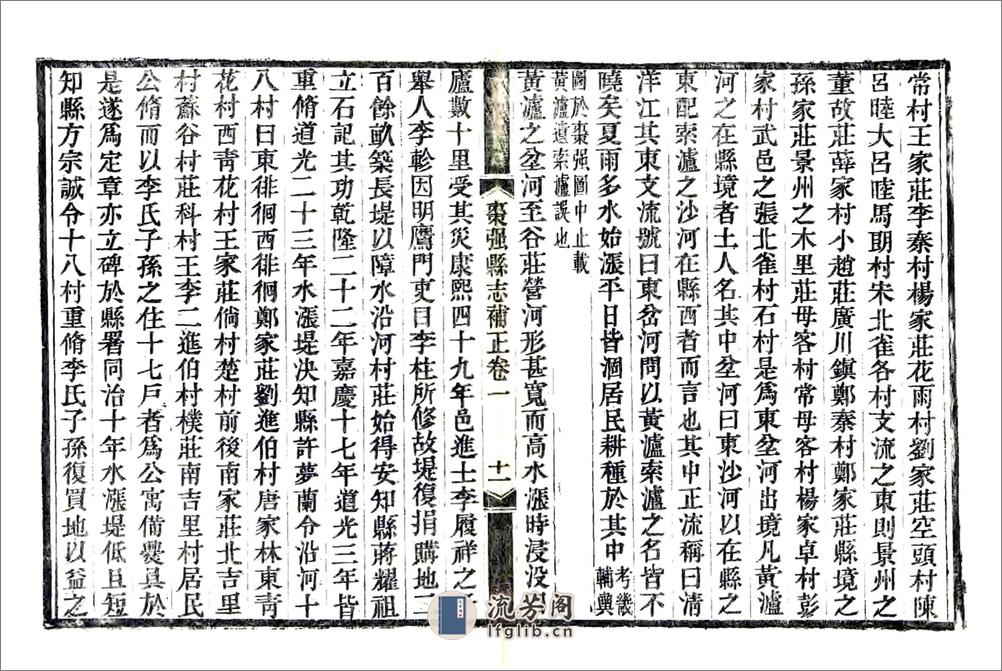 常村王家莊李秦村楊家莊花雨村劉家莊空頭村陳
呂睦大呂睦馬朗村宋北雀各村支流之東則景州之
董故莊薛家村小趙莊廣川鎮鄭秦村鄭家莊縣境之
孫家莊景州之木里莊母客村常母客村楊家卓村彭
家村武邑之張北雀村石村是爲東岔河出境凡黃瀘
河之在縣境者土人名其中岔河曰東沙河以在縣之
東配索瀘之沙河在縣西者而言也其中正流稱曰清
洋江其東支流號曰東岔河問以黃瀘索瀘之名皆不
曉矣夏雨多水始漲平日皆涸居民耕種於其中 考畿輔輿
圖於棗强圖中止載
黃瀘遺索瀘誤也
黃瀘之岔河至谷莊營河形甚寬而高水漲時浸没
棗强縣志補正卷一 十一
廬數十里受其災康熙四十九年邑進士李履祥之子
舉人李軫因明鷹門吏目李柱所修故堤復捐購地二
百餘畝築長堤以障水沿河村莊始得安知縣蔣耀祖
立石記其功乾隆二十二年嘉慶十七年道光三年皆
重脩道光二十三年水漲堤決知縣許夢蘭令沿河十
八村曰東徘徊西徘徊鄭家莊劉進伯村唐家林東青
花村西青花村王家莊倘村楚村前後南家莊北吉里
村蘇谷村莊科村王李二進伯村樸莊南吉里村居民
公脩而以李氏子孫之住十七戶者爲公寓備爨具於
是遂爲定章亦立碑於縣署同治十年水漲堤低且短
知縣方宗誠令十八村重脩李氏子孫復買地以益之
流芳閣
lfglib.cn